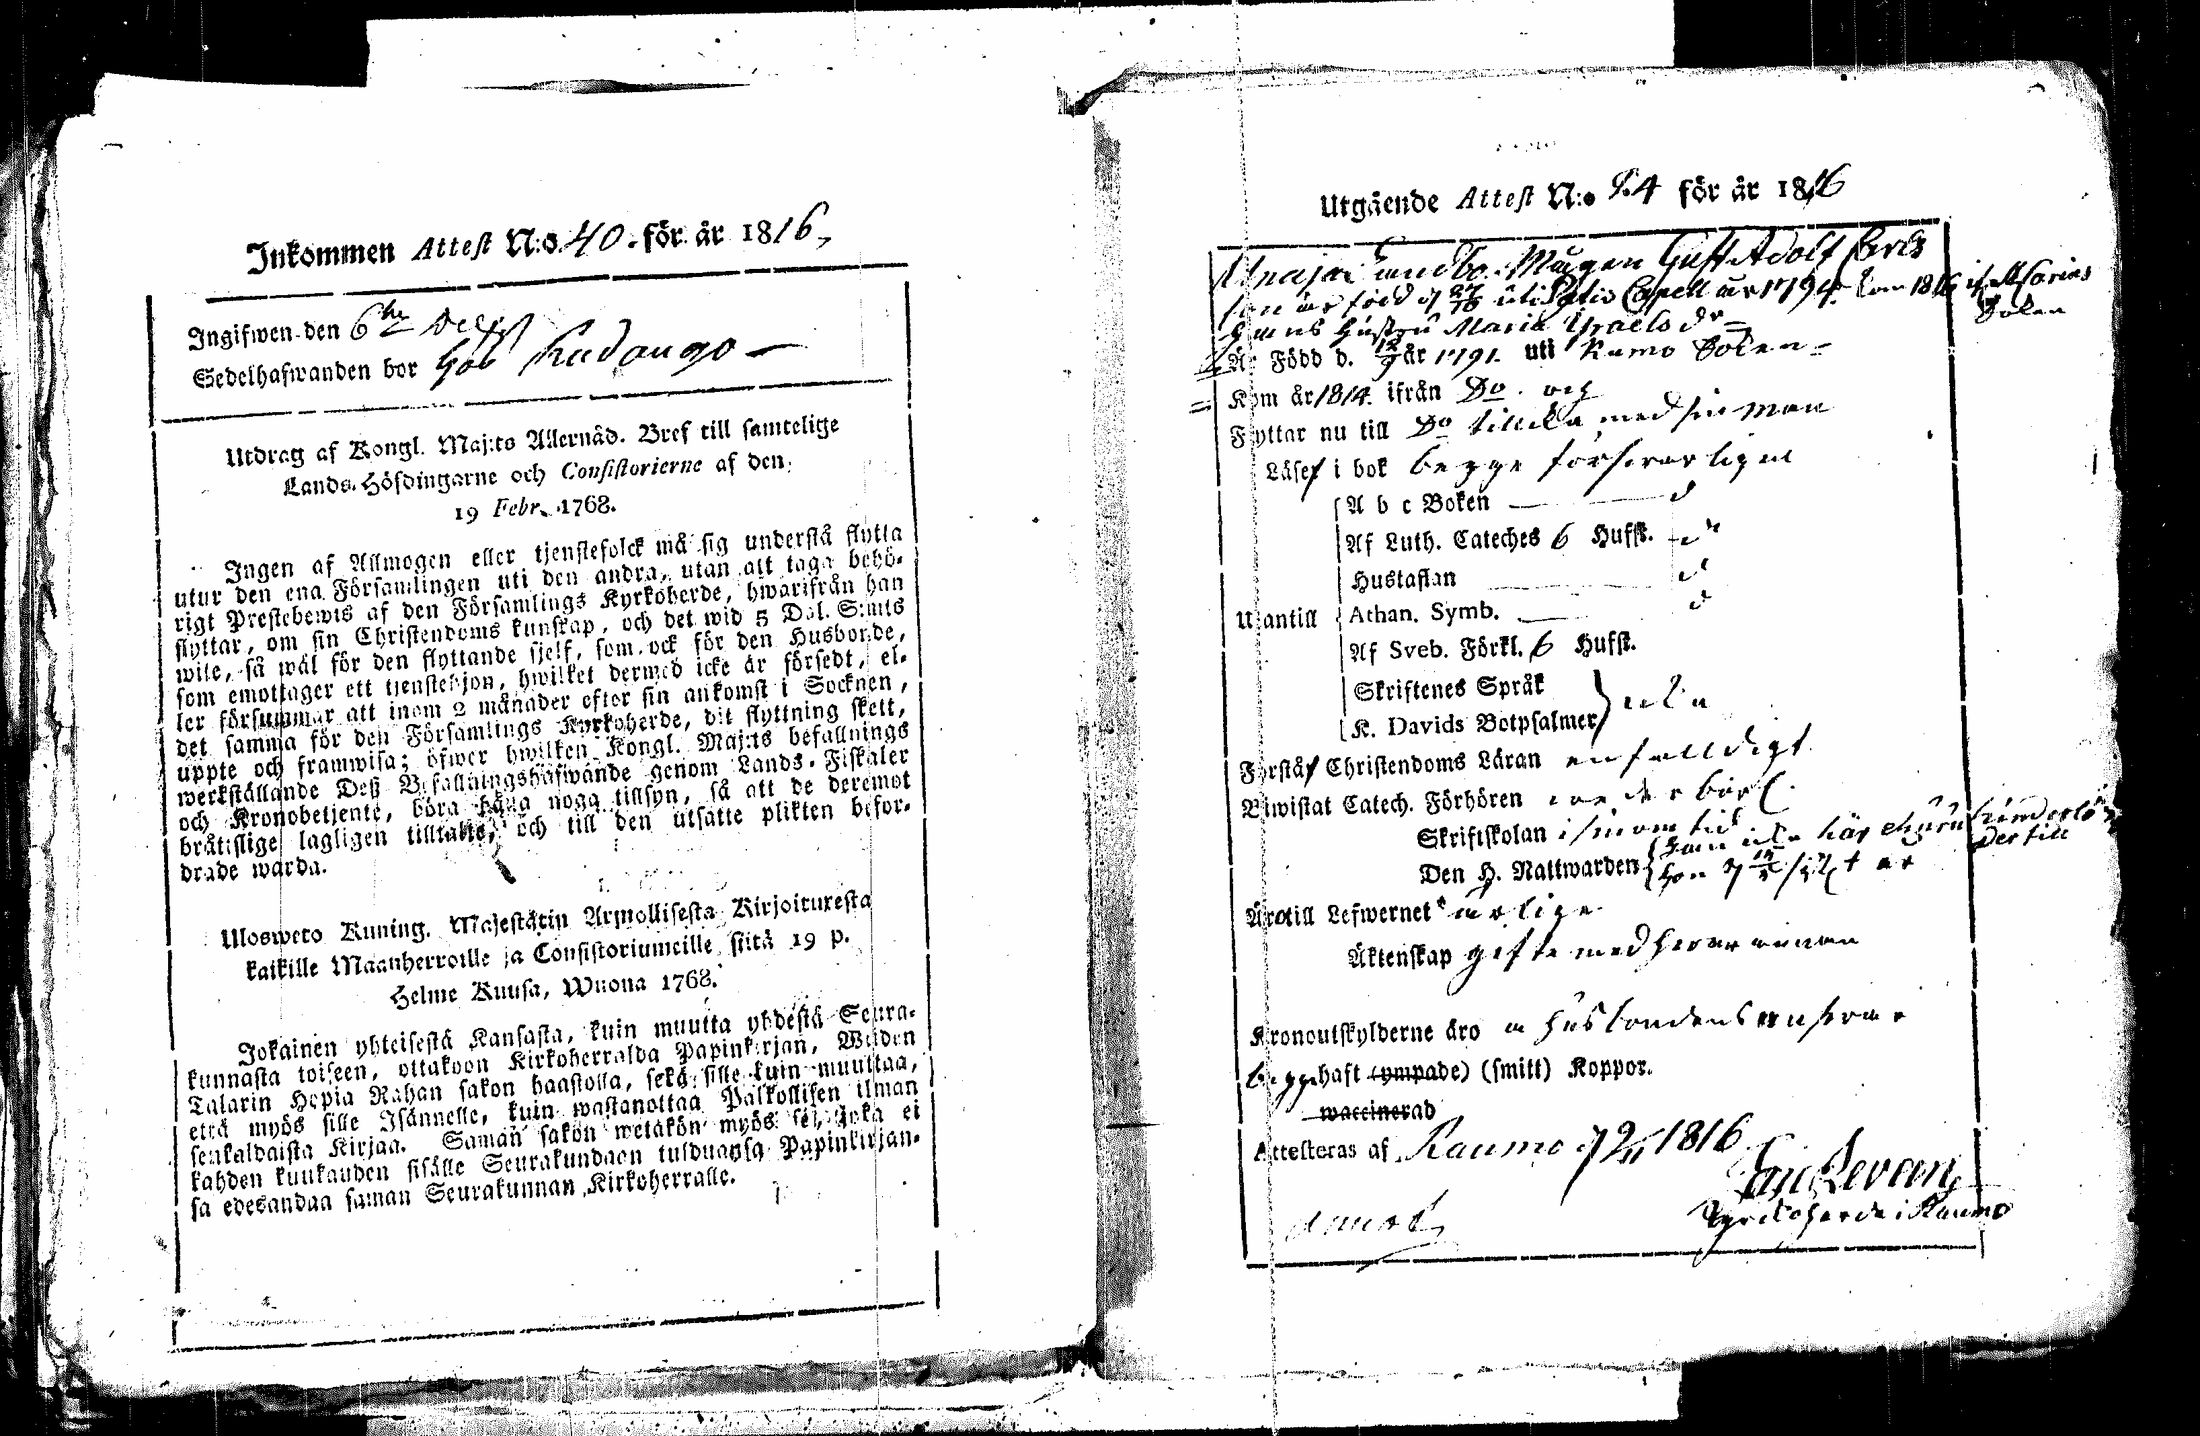 Inkommen Attest N:o 40. för år 1816,
Ingifwen den 6te Dec
Sedelhafwanden bor hos Ludango
Utdrag af Kongl. Maj:ts Allernåd. Bref till samtelige
Lands-Höfdingarne och Consistorierne af den
19 Febr. 1768.
Ingen af Allmogen eller tjenstefolck må sig understå flytta
utur den ena Församlingen uti den andra, utan att taga behö-
rigt Prestebewis af den Församlings Kyrkoherde, hwarifrån han
flyttar, om sin Christendoms kunskap, och det wid 5 Dal. S:mts
wite, så wäl för den flyttande sjelf, som ock för den Husbonde,
som emottager ett tjenstehjon, hwilket dermed icke är försedt, el-
ler försummar att inom 2 månader efter sin ankomst i Socknen,
det samma för den Församlings Kyrkoherde, dit flyttning skett,
uppte och framwisa; öfwer hwilken Kongl. Maj:ts befallnings
werkställande Deß Befallningshafwande genom Lands-Fiskaler
och Kronobetjente, böra hålla noga tillsyn, så att de deremot
brätislige lagligen tilltalas, och till den utsatte plikten befor-
drade warda.
Ulosweto Kuning. Majestätin Armollisesta Kirjoituxesta
kaikille Maanherroille ja Consistoriumeille siitä 19 p.
Helme Kuusa, Wuona 1768.
Jokainen yhteisestä Kansasta, kuin muutta yhdestä Seura-
kunnasta toiseen, ottakoon Kirkoherralda Papinkirjan, Wijden
Talarin Hopia Rahan sakon haastolla, sekä sille kuin muuttaa,
että myös sille Isännelle, kuin wastanottaa Palkollisen ilman
senkaldaista Kirjaa. Saman sakon wetäkön myös se, joka ei
kahden kuukauden sisälle Seurakundaan tulduansa Papinkirjan-
sa edesandaa saman Seurakunnan Kirkoherralle.
Utgående Attest N:o 54 för år 1816
Landbo Mågen Gust Adolf Carls
son är född d 27/10 uti Capell år 1794. kom 1816 ifr
Socken
Hans Hustru Maria Israels dr
Är Född d. 12/9 år 1791. uti Rumo Socken
Kom år 1814. ifrån Do. och
Flyttar nu till Do tillika med sin man
Läser i bok begge försvarligen
A b c Boken — d
Af Luth. Cateches 6 Hufst. — do
Hustaflan d
Utantill Athan. Symb. — d
Af Sveb. Förkl. 6 Hufst.
Skriftenes Språk
K. Davids Botpsalmer } icke
Förstår Christendoms Läran enfalldigt
Biwistat Catech. Förhören wederbörl.
Skriftskolan i sinom tid
Den H. Nattwarden
Äro till Lefwernet ärlige
Äktenskap gifte med hwarannan
Kronoutskylderne äro å husbondens ansvar
begge haft (ympade) (smitt) Koppor.
waccinerad
Attesteras af Raumo d 9/11 1816
Levan
Kyrckoherde i Raumo